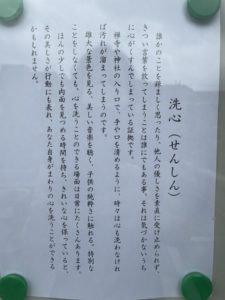 洗心（せんしん）
誰かのことを妬ましく思ったり、他人の優しさを素直に受け止められず、
きつい言葉を放ってしまうことは誰にでもある事。それは気づかないうち
に心がくすんでしまっている証拠です。
禅寺や神社の入り口で、手や口を清めるように、時々は心も洗わなけれ
ば汚れが溜まってしまうのです。
雄大な景色を見る、美しい音楽を聴く、子供の純粋さに触れる。特別な
ことをしなくても、心を洗うことのできる場面は日常にたくさんあります。
ほんの少しでも内面を見つめる時間を持ち、きれいな心を保っていると、
その美しさが行動にも表れ、あなた自身がまわりの心を洗うことができる
かもしれません。